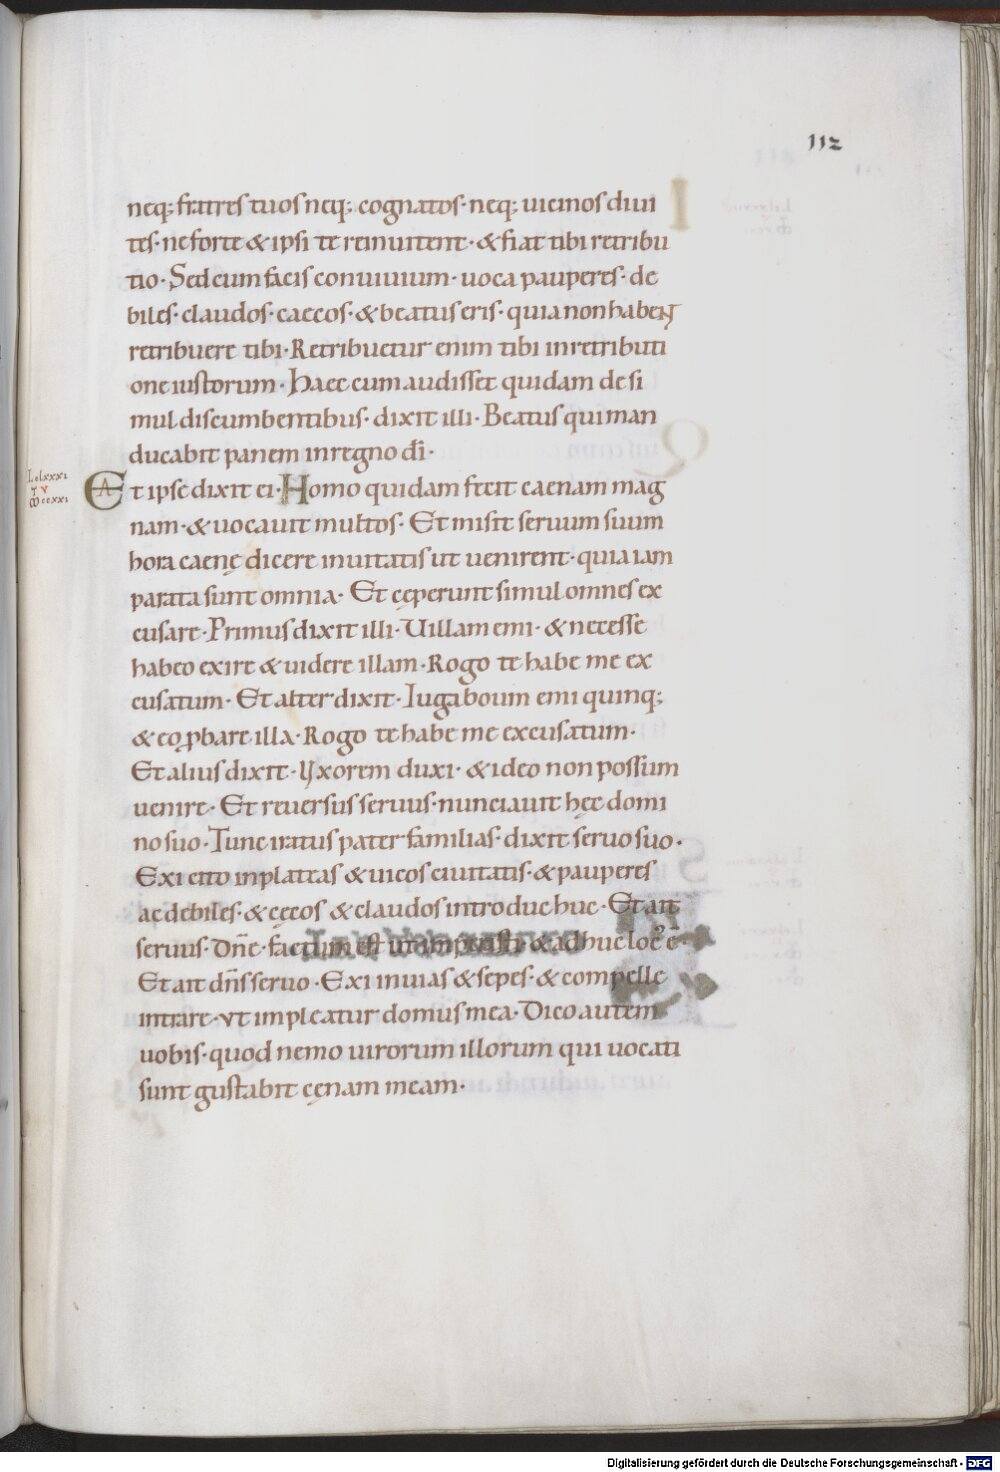 112
neq; fratres tuos neq; cognatos· neq; uicinos diui
tes· ne forte & ipsi te reinuitent· & fiat tibi retribu
tio· Sed cum facis conuiuium· uoca pauperes· de
biles· claudos· caecos· & beatus eris· quia non habent
retribuere tibi· Retribuetur enim tibi in retributi
one iustorum· Haec cum audisset quidam de si
mul discumbentibus· dixit illi· Beatus qui man
ducabit panem in regno dī·
Et ipse dixit ei· Homo quidam fecit caenam mag
nam· & uocauit multos· Et misit seruum suum
hora caenę dicere inuitatis ut uenirent· quia iam
parata sunt omnia· Et cęperunt simul omnes ex
cusare· Primus dixit illi· Uillam emi· & necesse
habeo exire & uidere illam· Rogo te habe me ex
cusatum· Et alter dixit· Iuga boum emi quinq;
& eo ꝓbare illa· Rogo te habe me excusatum·
Et alius dixit· Uxorem duxi· & ideo non possum
uenire· Et reuersus seruus· nunciauit hęc domi
no suo· Tunc iratus pater familias· dixit seruo suo·
Exi cito in plateas & uicos ciuitatis· & pauperes
ac debiles· & cęcos & claudos introduc huc· Et ait
seruus· Dnē· factum est ut imperasti· & adhuc loc' ē·
Et ait dn̄s seruo· Exi in uias & sepes· & compelle
intrare· ut impleatur domus mea· Dico autem
uobis· quod nemo uirorum illorum qui uocati
sunt gustabit cęnam meam·
Digitalisierung gefördert durch die Deutsche Forschungsgemeinschaft - DFG